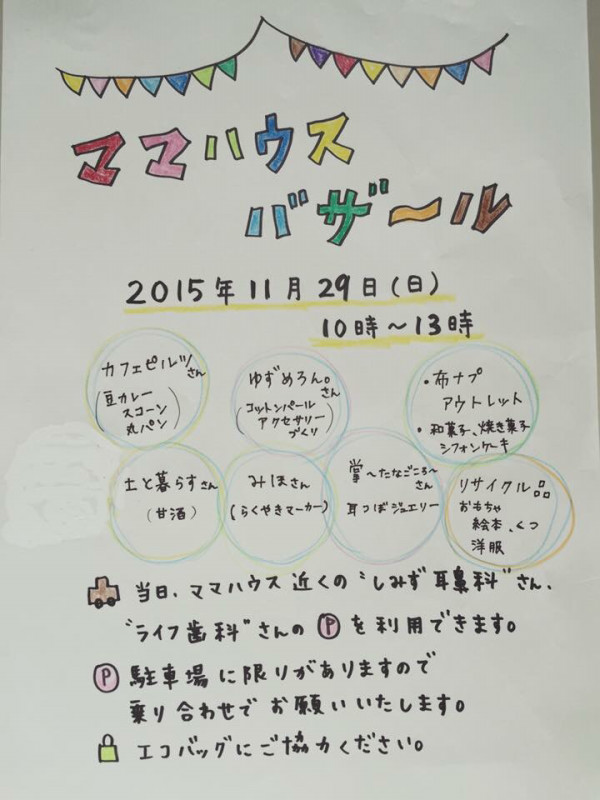 ママハウス
バザール
2015年11月29日(日)
10時〜13時
カフェピルツさん
(豆カレー
スコーン
丸パン)
ゆずめろん。さん
(コットンパール
アクセサリー
づくり)
・布ナプ
アウトレット
・和菓子、焼き菓子
シフォンケーキ
土と暮らすさん
(甘酒)
みほさん
(らくやきマーカー)
掌〜たなごころ〜さん
耳つぼジュエリー
リサイクル品
おもちゃ
絵本、くつ
洋服
当日、ママハウス近くの"しみず耳鼻科"さん、
"ライフ歯科"さんの Ⓟ を利用できます。
Ⓟ 駐車場に限りがありますので
乗り合わせでお願いいたします。
エコバッグにご協力ください。